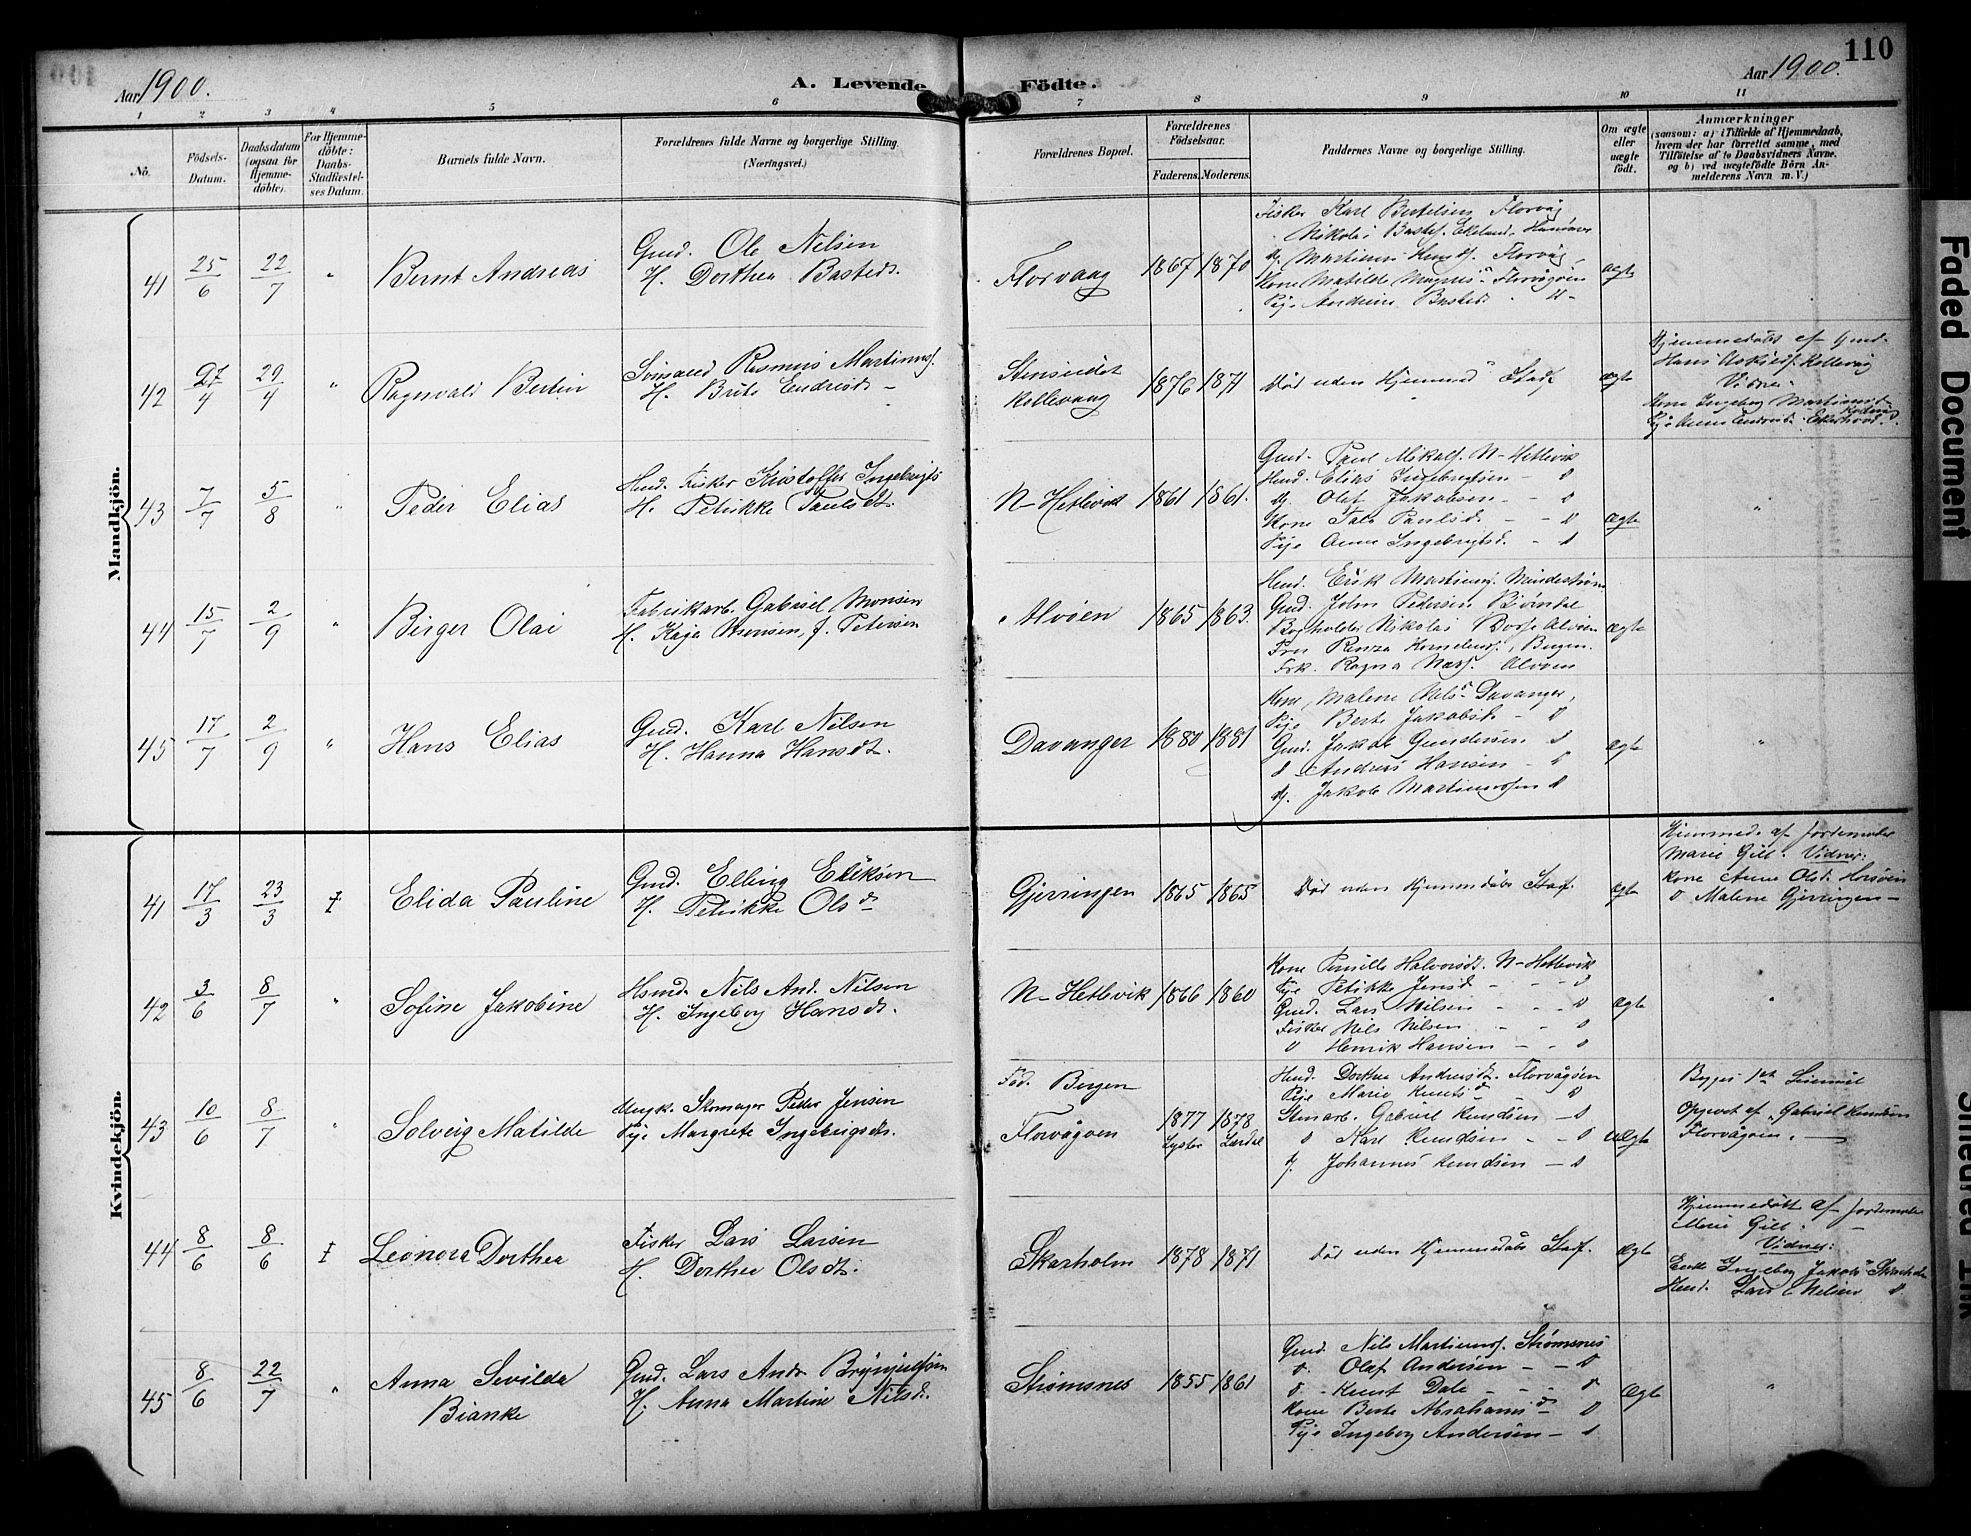 110
Aar 1900.
A. Levende Födte.
Aar 1900.
1 2 3 4 5 6 7 8 9 10 11
No.
Födsels-Datum.
Daabsdatum (ogsaa for Hjemme-döbte).
For Hjemme-döbte: Daabs-Stadfæstel-ses Datum.
Barnets fulde Navn.
Forældrenes fulde Navne og borgerlige Stilling. (Næringsvei.)
Forældrenes Bopæl.
Forældrenes Födselsaar.
Faderens. Moderens.
Faddernes Navne og borgerlige Stilling.
Om ægte eller uægte födt.
Anmærkninger
(saasom: a) i Tilfælde af Hjemmedaab, hvem der har forrettet samme, med Tilföielse af to Daabsvidners Navne, og b) ved uægtefödte Börn An-melderens Navn m. V.)
Mandkjön.
41 25/6 22/7 " Bernt Andreas
Gmd. Ole Nilsen
H. Dorthea Bastesd.
Florvaag 1867 1870
Fisker Karl Bertelsen Florvåg
Nikolai Bastes. Ekeland
Martinus Knuds. Florvåg
Kone Matilde Magnusd. Florvågöen
Pige Andrine Bastesd. "
Ægte
42 27/4 29/4 " Ragnvald Bertin
Sömand Rasmus Martinuss.
H. Brite Endresd.
Stenseidet Kollevaag 1876 1871
Död uden Hjemmed. Stadf.
Ægte
Hjemmedöbt af Gmd.
Hans Kollevåg
Vidner
Kone Ingeborg Martinusd.
Pige Anna Endresd.
43 7/7 5/8 " Peder Elias
Hmd. Fisker Kristoffer Ingebrigts.
H. Petrikke Paulsdt.
N-Hetlevik 1861 1861.
Gmd. Paul Mikals. N-Hetlevik
Hmd. Elias Ingebrigtsen - D
Olaf Jakobsen - D
Kone Paulsd. - D
Pige Anna Ingebrigtsd. - D
Ægte "
44 15/7 2/9 " Birger Olai
Fabrikarb. Gabriel Monsen
H. Kaja Monsen, f. Petersen
Alvöen 1865 1863.
Hmd. Erik Martinus. Mindeström
Gmd. John Pedersen Björndal
Bogholder Nikolai Alvöen
Fru Kornelius. Bergen.
Frk. Ragna Alvöen
Ægte "
45 17/7 2/9 " Hans Elias
Gmd. Karl Nilsen
H. Hanna Hansdt.
Davanger 1880 1881
Kone Malene Nilsd. Davanger,
Pige Berte Jakobsd. - D
Gmd. Jakob Gundersen D
D Andreas Hansen - D
Jakob Martinussen D
Ægte "
Kvindekjön.
41 17/3 23/3 ‡ Elida Pauline
Gmd. Elling Eriksen
H. Petrikke Olsd.
Gjerringen 1865 1865
Död uden Hjemmedåbs Stadf.
Ægte
Hjemmed. af Jordemoder
Marie Gill. Vidner:
Kone Anne Olsd. Horsöen
D Malene Gjerringen -
42 3/6 8/7 " Sofine Jakobine
Hsmd. Nils And. Nilsen
H. Ingeborg Hansdt.
N-Hetlevik 1866 1860
Kone Pernille Halvorsdt. N-Hetlevik
Pige Petrikke Jensd. - - D
Gmd. Lars Nilsen - - D
Fisker Nils Nilsen - - D
D Henrik Hansen - - D
Ægte "
43 10/6 8/7 " Solveig Matilde
Ungk. Skomager Peder Jensen
Pige Margrete Ingebrigtsdt.
Föd. Bergen
Florvågöen
1877 Lyster 1878 Lærdal
Hmd. Dorthea Andreasdt. Florvågöen
Pige Marie Knutsd. D
Stenarb. Gabriel Knudsen - D
D Karl Knudsen - - D
Johannes Knudsen - D
Uægte
Begges 1ste Leiermål
Opgivet af Gabriel Knudsen
Florvågöen.
44 8/6 8/6 ‡ Leonora Dorthea
Fisker Lars Larsen
H. Dorthea Olsdt.
Skarholm 1878 1871
Död uden Hjemmedåbs Stadf.
Ægte
Hjemmedöbt af Jordemoder
Marie Gill.
Vidner:
Enke Ingeborg Jakobsd.
Hmd. Lars Nilsen D
45 8/6 22/7 " Anna Sevilda Bianke
Gmd. Lars Andr. Brynjulfsen
H. Anna Martine Nilsd.
Strömsnes 1855 1861
Gmd. Nils Martinuss. Strömsnes
D. Olaf Andersen - - D
D - Knut Dale - - - D
Kone Berte Abrahamsd. - D
Pige Ingeborg Andersen - D
Ægte "
Faded Document
Smeared Ink